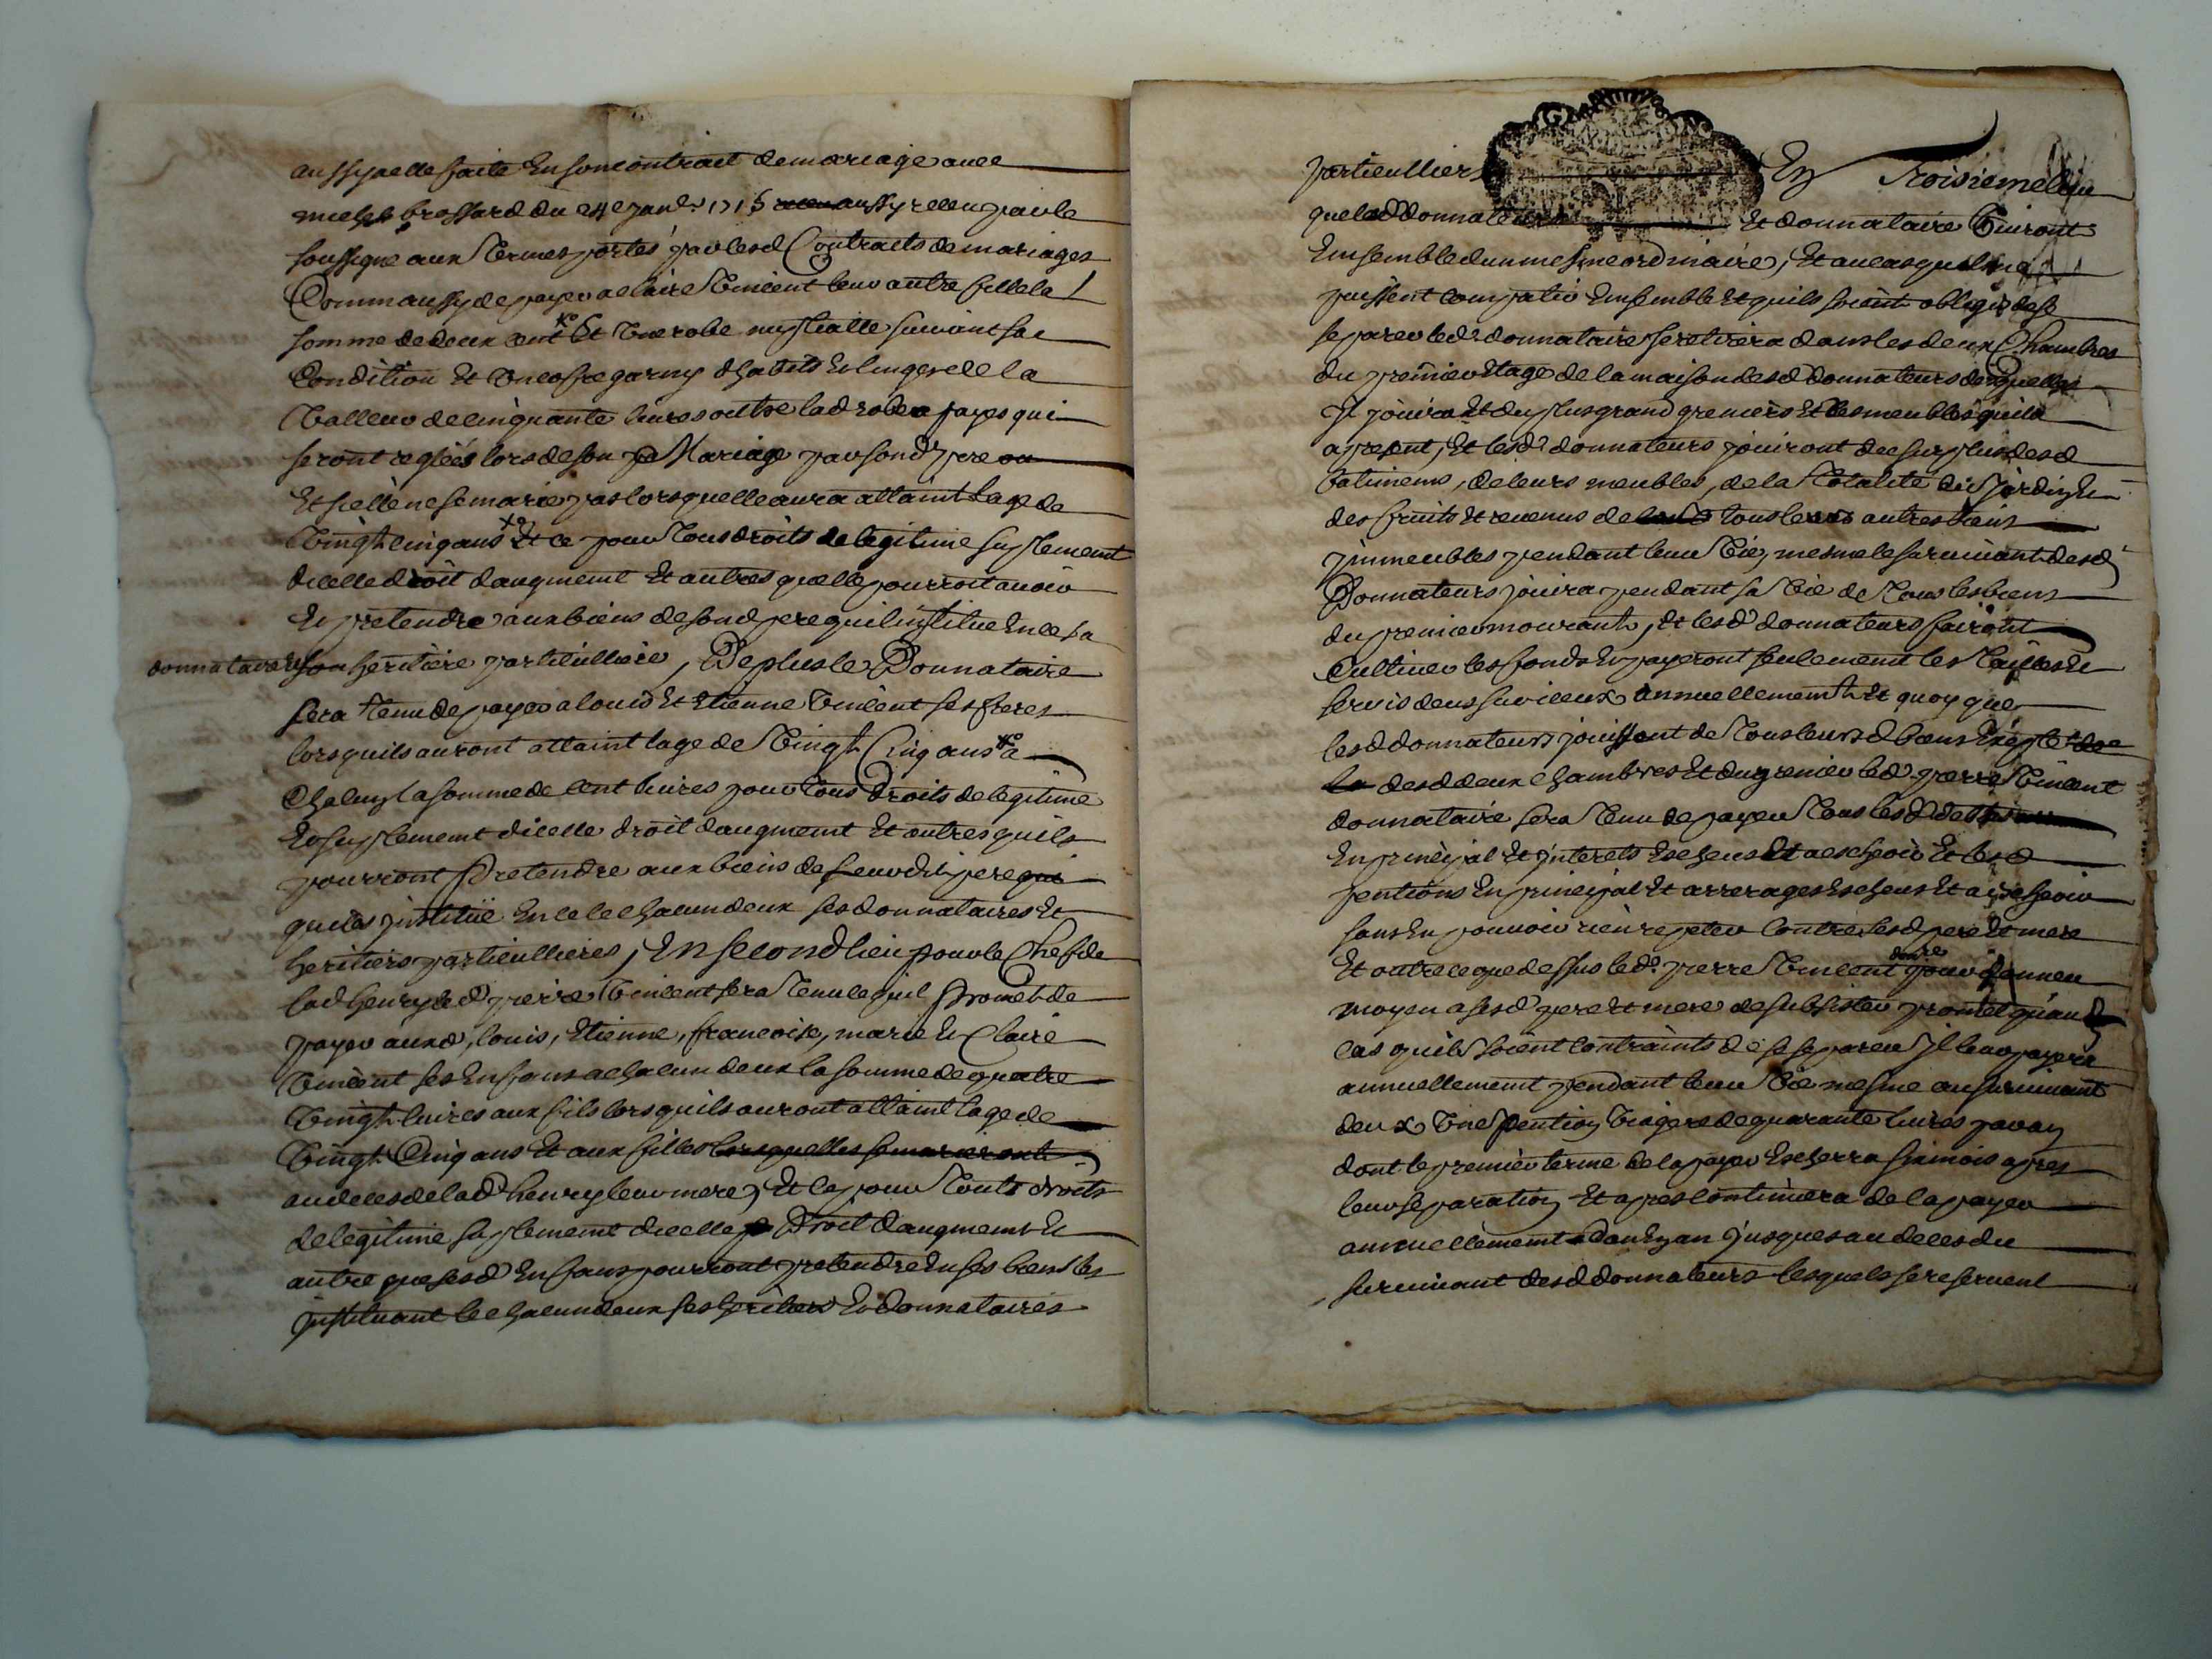 aussy a elle faite en son contrait de mariage avec
michel brossard du 24e janr. 1715 aussy receu par le
soussigné aux termes portés par lesd Contracts de mariages
Comm aussy de payer a claire Vincent leur autre fille la
somme de deux cent # et une robe nuptialle suivant sa
Condition et un cofre garny d'habits et linges de la
Valleur de cinquante livres outre lad robe a payes qui
seront reglées lors de son Mariage par sond pere ou
Et si elle ne se marie pas lorsquelle aura attaint l'age de
Vingt cinq ans et ce pour tous droits de legitime suplement
d'icelle droit d'augment et autres qu'elle pourroit avoir
Et pretendre aux biens de sond pere qui l'institue en ce sa
donnataire et son heritiere particulliere, De plus le Donnataire
sera tenu de payer a louis et Etienne Vincent ses freres
lorsquils auront attaint lage de Vingt Cinq ans a
Chacun la somme de cent livres pour tous droits de legitime
Et suplement dicelle droit daugment et autres quils
pourront pretendre aux biens de leurdit pere qui
qui les institüe en ce chacun deux ses donnataires et
heritiers particulliers, En second lieu pour le Chef de
lad henry led pierre Vincent sera tenu lequel promet de
payer auxd, louis, Etienne, francoise, marie et Claire
Vincent ses enfans a chacun deux la somme de quatre
Vingt livres aux fils lorsquils auront attaint lage de
Vingt Cinq ans et aux filles lorsquelles se marieront
au deces de lad henry leur mere, et ce pour touts droits
de legitime suplement dicelle droit daugment et
autre que sesd Enfans pourront pretendre en ses biens les
instituant ce chacun deux ses heritiers et donnataires
particulliers En Troisieme lieu
que lesd donnateurs et donnataire Vivront
Ensemble dun mesme ordinaire, Et au cas quils ne
puissent compatir Ensemble et quils soient obligés de se
separer led. donnataire se retirera dans les deux Chambres
du premier Etage de la maison desd donnateurs desquelles
Il jouira et du plus grand greniers et des meubles quil a
a present, Et lesd. donnateurs jouiront du surplus desd
batimens, de leurs meubles, de la totalité du Jardin, Et
des fruits et revenus de tous leurs autres biens
immeubles pendant leur Vie, mesme le survivant desd
Donnateurs jouira pendant sa Vie de tous les biens
du premier mourant, Et lesd. donnateurs fairont
Cultiver les fonds Et payeront seulement les tailles et
servis deus sur iceux annuellement Et quoy que
lesd donnateurs jouissent de tous leursd biens Exepte
desd deux chambres et du grenier led. pierre Vincent
donnataire sera tenu de payer tous lesd dettes
En principal et interets Escheus Et a escheoir Et lesd
pentions En principal Et arrerages Escheus Et a escheoir
sans En pouvoir rien repeter Contre sesd pere Et mere
Et outre ce que dessus led. pierre Vincent pour donner
moyen a sesd pere Et mere de subsister promet quau
cas quils soient contraints de se separer Il leur payera
annuellement pendant leur Vie mesme au survivant
deux Une pention Viagere de quarante livres par an
dont le premier terme de la payer Escherra six mois apres
leur separation Et apres continuera de la payer
annuellement dan En an jusques au deces du
survivant desd donnateurs lesquels se reservent